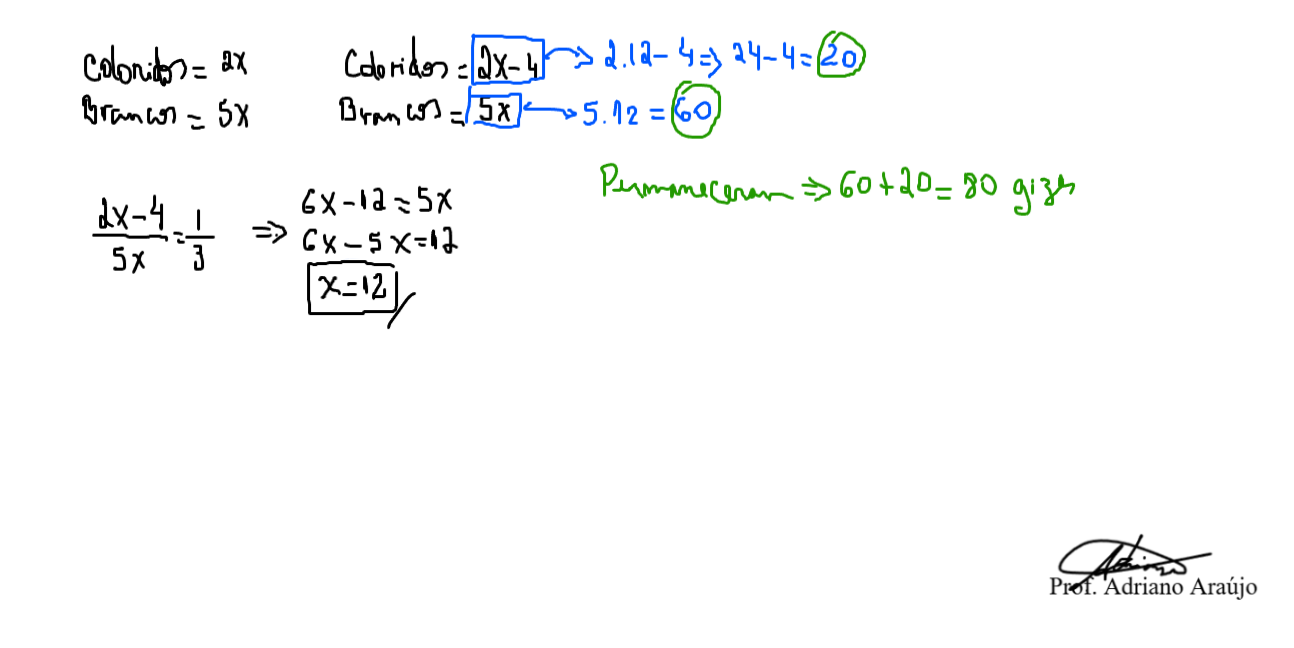 Coloridos = 2x
Brancos = 5x
Coloridos = 2x-4 → 2.12-4 ⇒ 24-4 = 20
Brancos = 5x → 5.12 = 60
Permaneceram ⇒ 60+20 = 80 gizes
2x-4/5x = 1/3 ⇒
6x-12 = 5x
6x-5x = 12
x = 12
Prof. Adriano Araújo